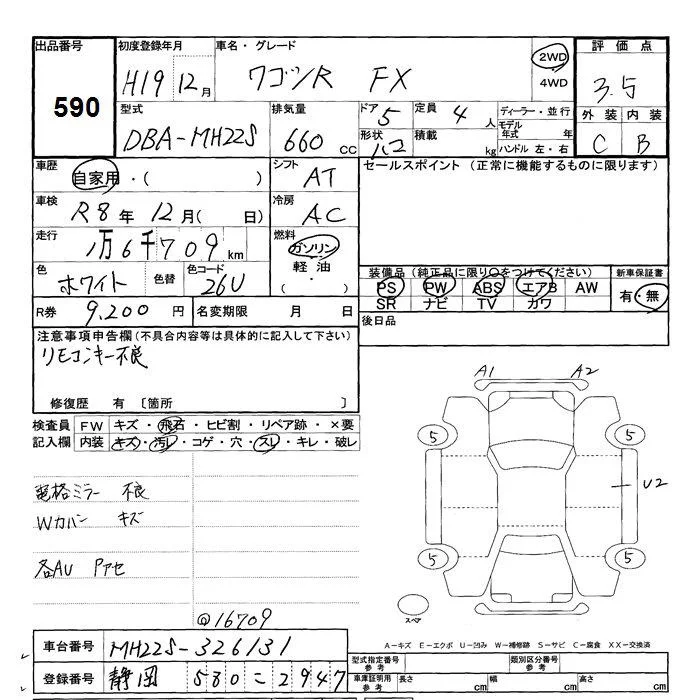 出品番号
590
初度登録年月
H19 12月
車名・グレード
ワゴンR FX
2WD
4WD
評価点
3.5
外装 内装
C B
型式
DBA-MH22S
排気量
660 CC
ドア 5
形状 ハコ
定員 4 人
積載 kg
ディーラー・並行
モデル年式 年
ハンドル 左・右
車歴
自家用・( )
シフト
AT
セールスポイント (正常に機能するものに限ります)
車検
R8年 12月( 日)
冷房
AC
走行
1万6千709km
燃料
ガソリン
軽油
・( )
色
ホワイト
色替
色コード
26U
装備品 (純正品に限り○をつけてください)
PS PW ABS エアB AW
SR ナビ TV カワ
新車保証書
有・無
R券 9,200 円
名変期限 月 日
後日品
注意事項申告欄(不具合内容等は具体的に記入して下さい)
リモコンキー不良
修復歴 有 [箇所 ]
検査員記入欄
FW キズ・飛石・ヒビ割・リペア跡・×要
内装 キズ・汚レ・コゲ・穴・スレ・キレ・破レ
A1 A2
5 5
U2
5 5
スペア
電格ミラー 不良
Wカバン キズ
各AU Pアセ
@16709
A-キズ E-エクボ U-凹み W-補修跡 S-サビ C-腐食 XX-交換済
車台番号 MH22S-326131
登録番号 静岡 580 = 2947
型式指定番号 参考
類別区分番号 参考
車庫証明用 参考
長さ cm
幅 cm
高さ cm